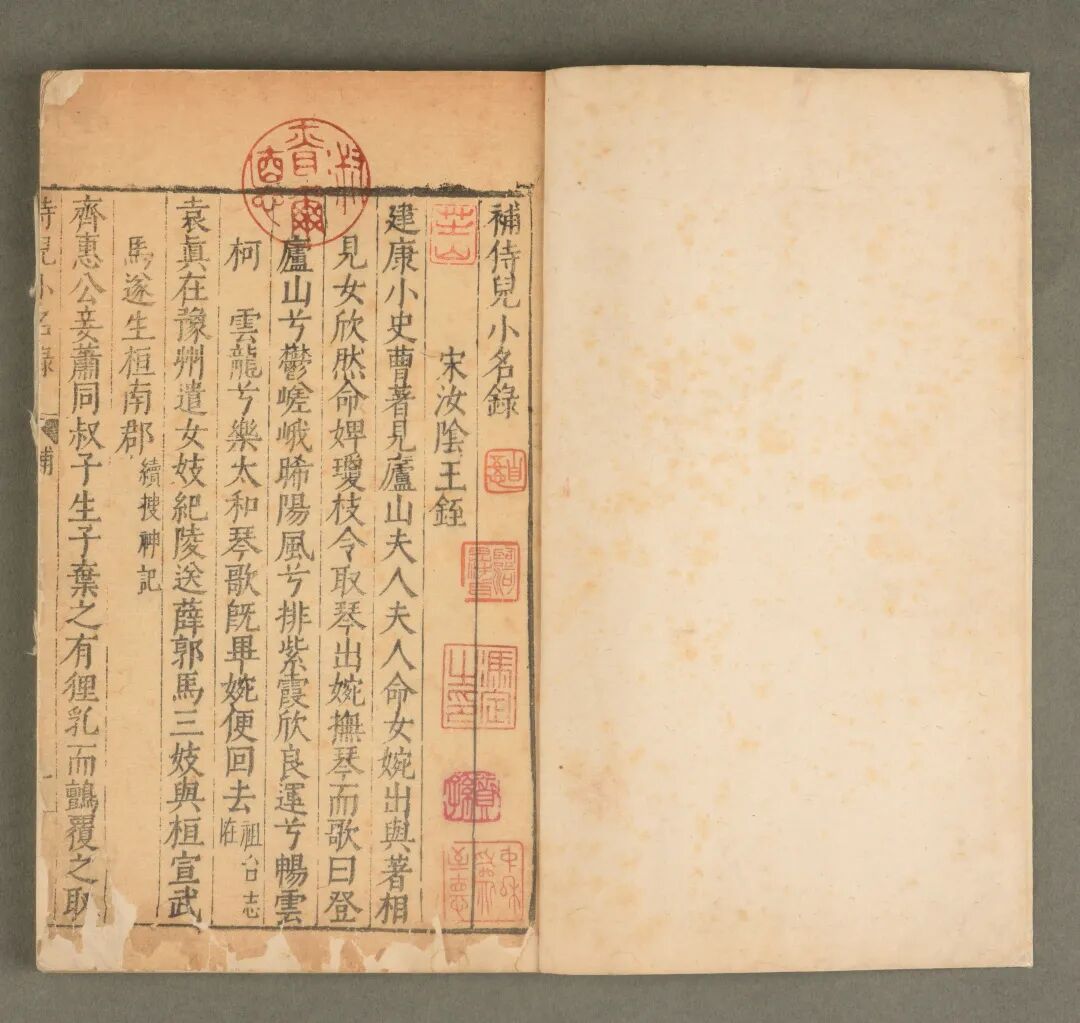 補侍兒小名錄
宋汝陰王銍
建康小史曹著見廬山夫人夫人命女婉出與著相
見女欣然命婢瓊枝令取琴出婉撫琴而歌曰登
廬山兮鬱嵯峨晞陽風兮排紫霞欣良運兮暢雲
柯　雲龍兮樂太和琴歌旣畢婉便回去祖台志怪
袁眞在豫州遣女妓紀陵送薛郭馬三妓與桓宣武
馬遂生桓南郡續搜神記
齊惠公妾蕭同叔子生子棄之有狸乳而鸇覆之取
侍兒小名錄 補